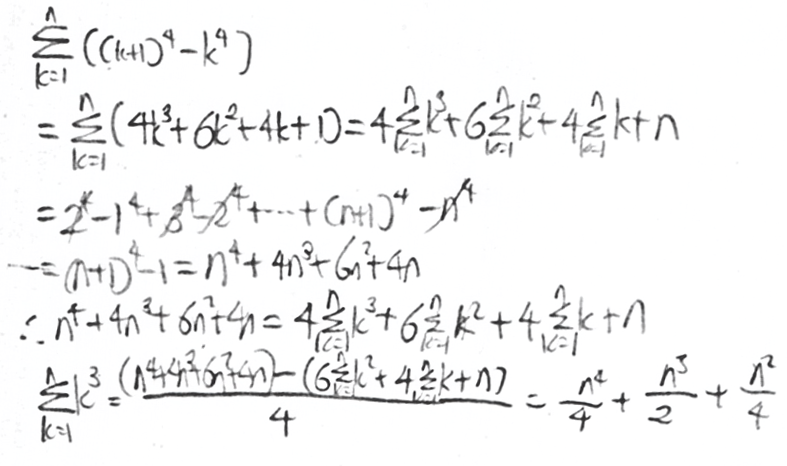 \sum_{k=1}^{n} ((k+1)^4 - k^4)
= \sum_{k=1}^{n} (4k^3 + 6k^2 + 4k + 1) = 4\sum_{k=1}^{n} k^3 + 6\sum_{k=1}^{n} k^2 + 4\sum_{k=1}^{n} k + n
= 2^4 - 1^4 + 3^4 - 2^4 + \cdots + (n+1)^4 - n^4
= (n+1)^4 - 1 = n^4 + 4n^3 + 6n^2 + 4n
\therefore n^4 + 4n^3 + 6n^2 + 4n = 4\sum_{k=1}^{n} k^3 + 6\sum_{k=1}^{n} k^2 + 4\sum_{k=1}^{n} k + n
\sum_{k=1}^{n} k^3 = \frac{(n^4 + 4n^3 + 6n^2 + 4n) - (6\sum_{k=1}^{n} k^2 + 4\sum_{k=1}^{n} k + n)}{4} = \frac{n^4}{4} + \frac{n^3}{2} + \frac{n^2}{4}